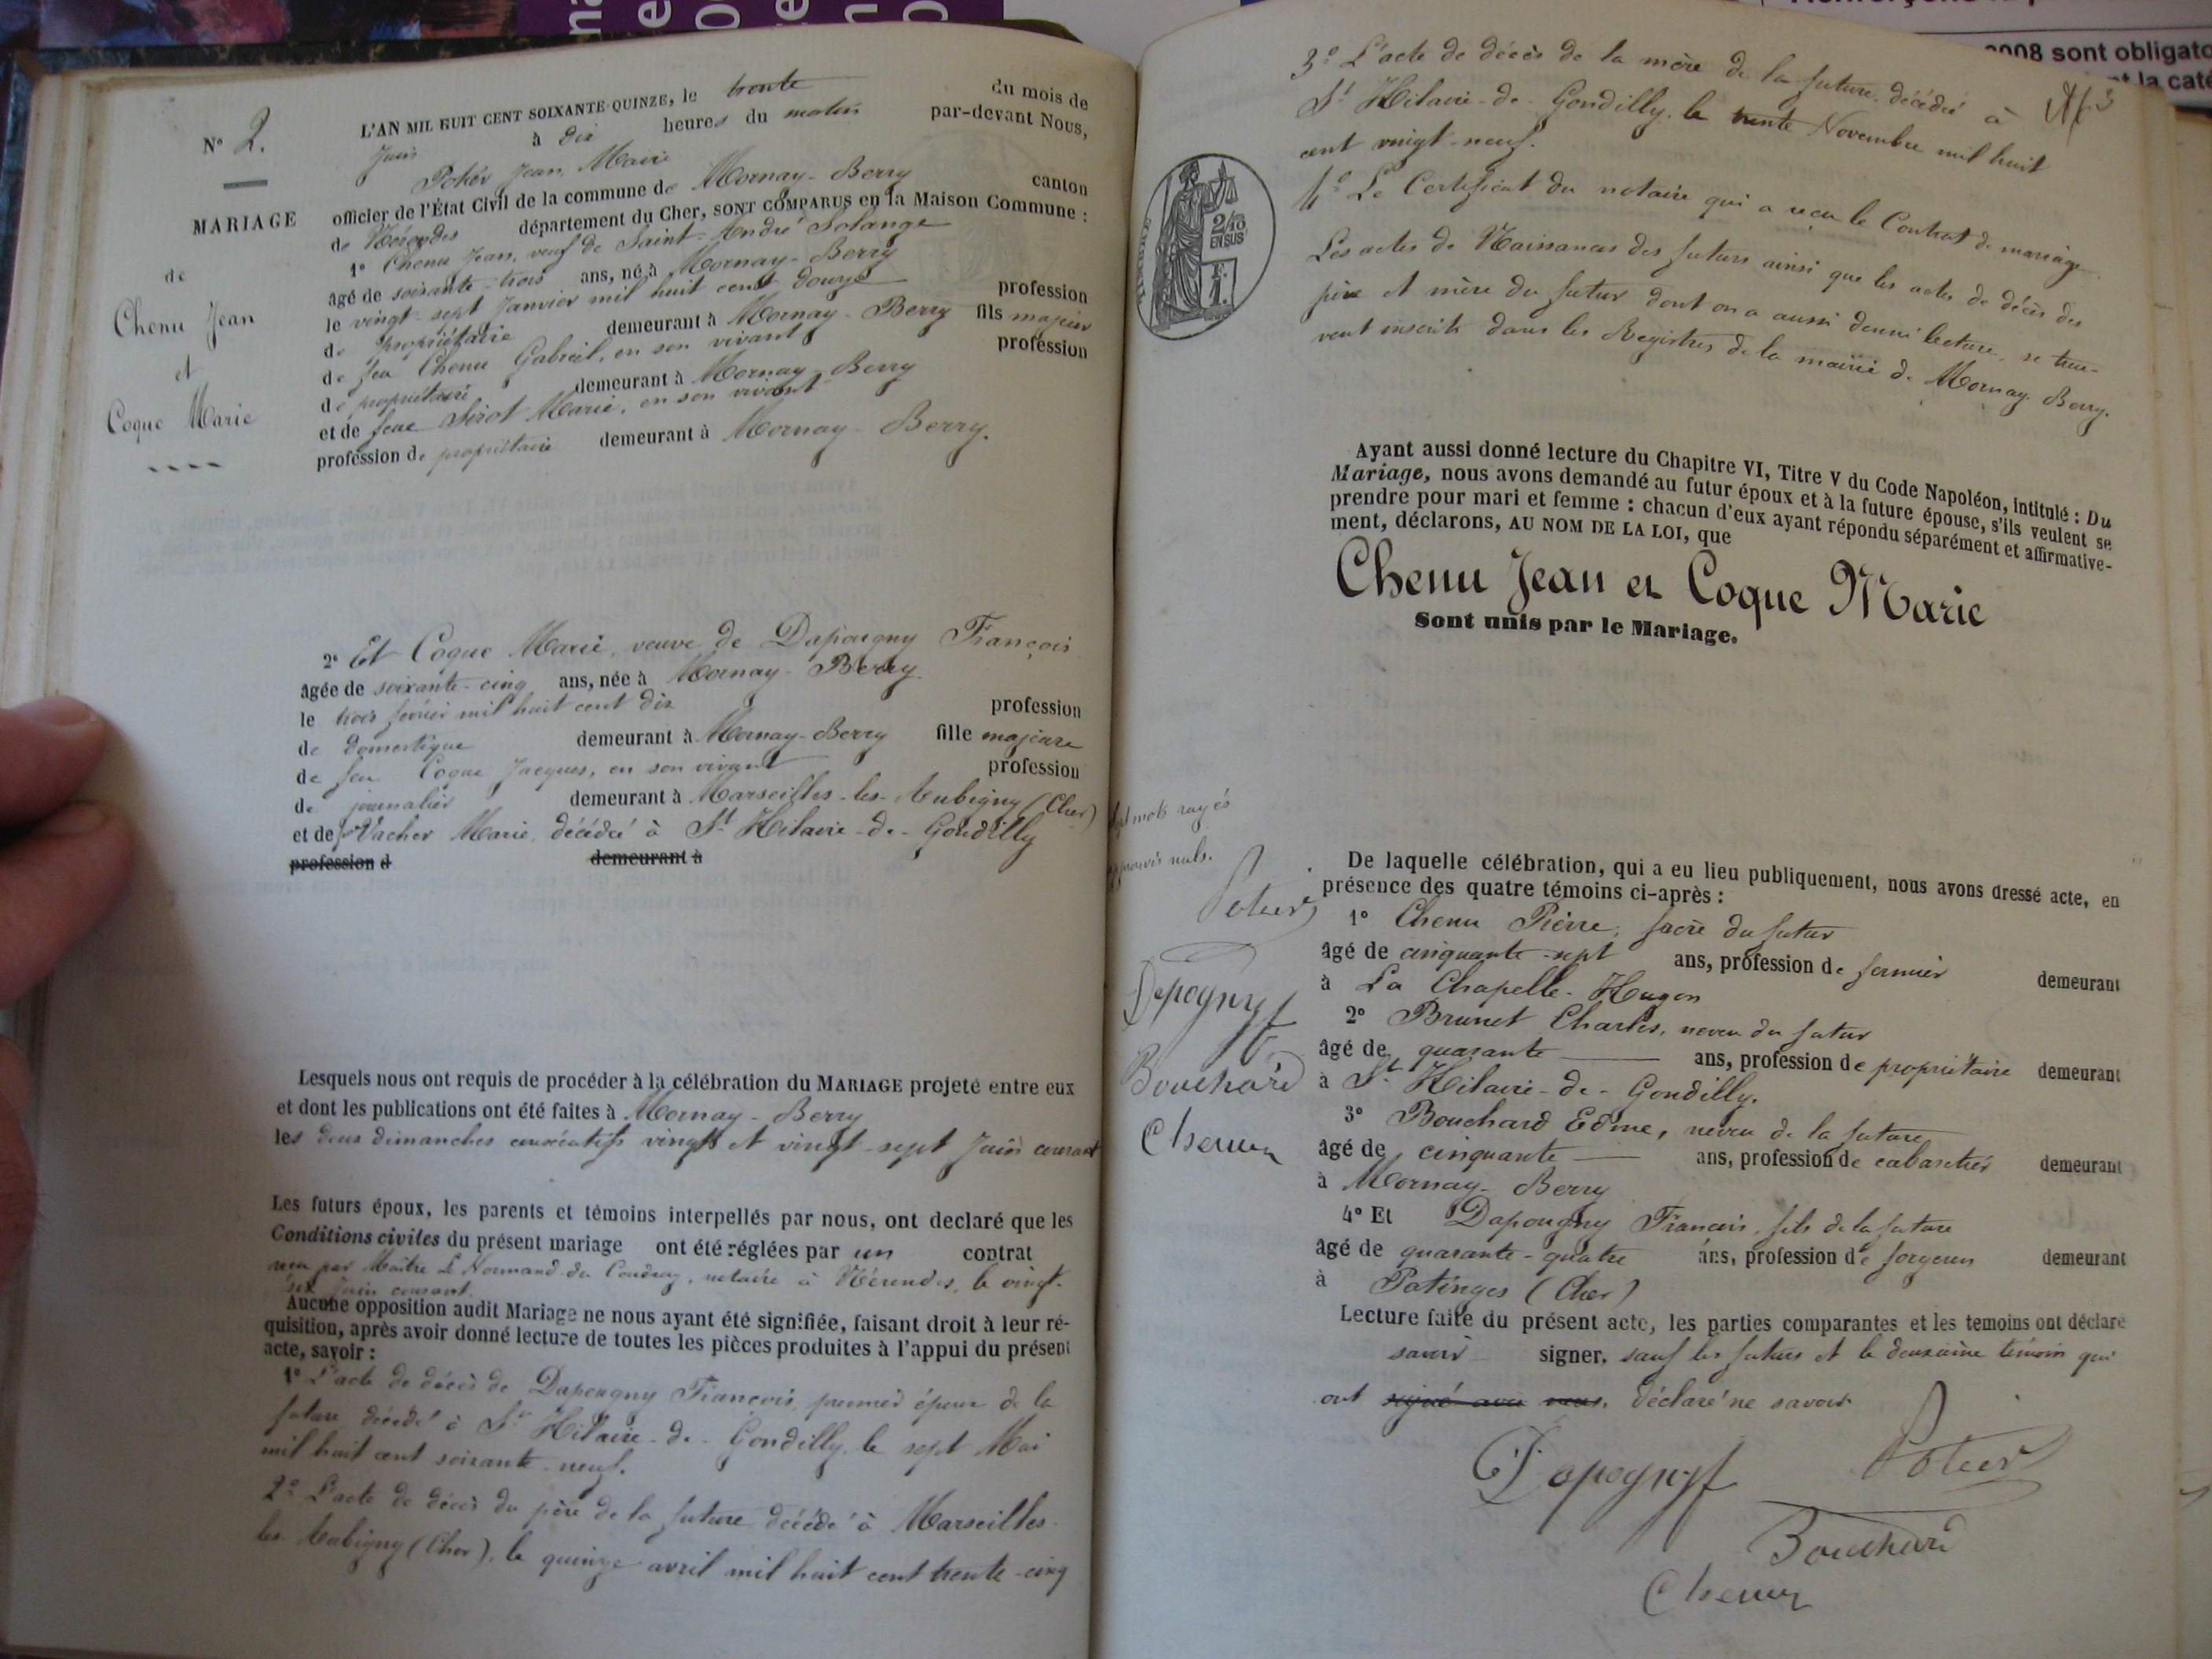 N° 2.
MARIAGE
de
Chenu Jean
et
Coque Marie
L'AN MIL HUIT CENT SOIXANTE-QUINZE, le trente du mois de
Juin à dix heures du matin par-devant Nous,
Potier Jean, Maire
officier de l'État Civil de la commune de Mornay-Berry canton
de Nérondes département du Cher, SONT COMPARUS en la Maison Commune :
1° Chenu Jean, veuf de Saint-André Solange
âgé de soixante-trois ans, né à Mornay-Berry
le vingt-sept Janvier mil huit cent douze profession
de propriétaire demeurant à Mornay-Berry fils majeur
de feu Chenu Gabriel, en son vivant profession
de propriétaire demeurant à Mornay-Berry
et de feue Sirot Marie, en son vivant
profession de propriétaire demeurant à Mornay-Berry.
2° Et Coque Marie, veuve de Dapougny François
âgée de soixante-cinq ans, née à Mornay-Berry.
le trois février mil huit cent dix profession
de domestique demeurant à Mornay-Berry fille majeure
de feu Coque Jacques, en son vivant profession
de journalier demeurant à Marseilles-les-Aubigny (Cher)
et de feue Vacher Marie, décédée à St Hilaire-de-Gondilly
profession d demeurant à
Lesquels nous ont requis de procéder à la célébration du MARIAGE projeté entre eux
et dont les publications ont été faites à Mornay-Berry
les deux dimanches consécutifs vingt et vingt-sept Juin courant
Les futurs époux, les parents et témoins interpellés par nous, ont declaré que les
Conditions civiles du présent mariage ont été réglées par un contrat
reçu par Maître Le Normand du Coudray, notaire à Nérondes, le vingt-
six Juin courant.
Aucune opposition audit Mariage ne nous ayant été signifiée, faisant droit à leur ré-
quisition, après avoir donné lecture de toutes les pièces produites à l'appui du présent
acte, savoir :
1° L'acte de décès de Dapougny François, premier époux de la
future décédé à St Hilaire-de-Gondilly, le sept Mai
mil huit cent soixante-neuf.
2° L'acte de décès du père de la future, décédé à Marseilles-
les-Aubigny (Cher), le quinze avril mil huit cent trente-cinq
3° L'acte de décès de la mère de la future, décédée à
St Hilaire-de-Gondilly, le trente Novembre mil huit
cent vingt-neuf.
4° Le Certificat du notaire qui a reçu le Contrat de mariage.
Les actes de Naissances des futurs ainsi que les actes de décès des
père et mère du futur dont on a aussi donné lecture, se trou-
vent inscrits dans les Registres de la mairie de Mornay-Berry.
TIMBRE
2/10
EN SUS
Ayant aussi donné lecture du Chapitre VI, Titre V du Code Napoléon, intitulé : Du
Mariage, nous avons demandé au futur époux et à la future épouse, s'ils veulent se
prendre pour mari et femme : chacun d'eux ayant répondu séparément et affirmative-
ment, déclarons, AU NOM DE LA LOI, que
Chenu Jean et Coque Marie
Sont unis par le Mariage.
mots rayés
nuls.
Potier
Dapogny
Bouchard
Chenu
De laquelle célébration, qui a eu lieu publiquement, nous avons dressé acte, en
présence des quatre témoins ci-après :
1° Chenu Pierre, frère du futur
âgé de cinquante-sept ans, profession de fermier demeurant
à La Chapelle-Hugon
2° Brunet Charles, neveu du futur
âgé de quarante ans, profession de propriétaire demeurant
à St Hilaire-de-Gondilly.
3° Bouchard Edme, neveu de la future
âgé de cinquante ans, profession de cabaretier demeurant
à Mornay-Berry
4° Et Dapougny François, fils de la future
âgé de quarante-quatre ans, profession de forgeron demeurant
à Patinges (Cher)
Lecture faite du présent acte, les parties comparantes et les temoins ont déclaré
savoir signer, sauf les futurs et le deuxième témoin qui
ont signé avec nous, déclaré ne savoir.
Dapogny
Potier
Bouchard
Chenu
2008 sont obligato